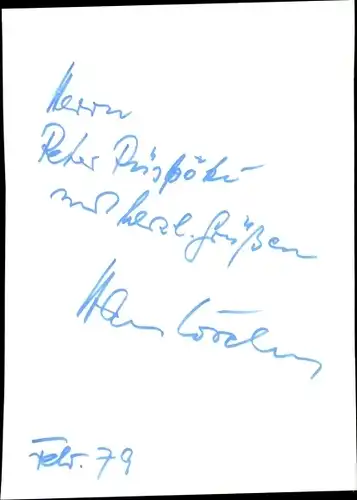 Herrn
Peter Püspöki
mit herzl. Grüßen
Hans
Febr. 79